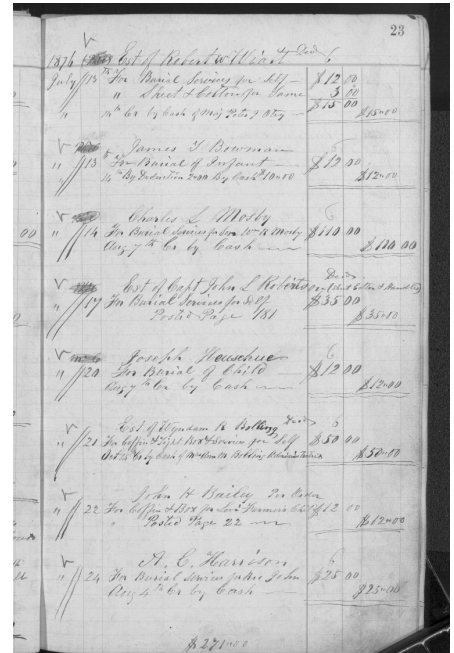 23
1876 Est of Robert W Wiart Dead
July 13 For Burial Services for Self $12 00
" Sheet & Cotton for Same 3 00
$15 00
14th Cr by Cash of Maj Peter J Otey $15 00
James Y Bowman
" 13 For Burial of Infant $12 00
14th By Deduction 2 00 By Cash 10 00 $12 00
Charles L Mosby
" 14 For Burial Services for Son Wm H Mosby $110 00
Aug 7th Cr by Cash $110 00
Est of Capt John L Roberts Dead
" 17 For Burial Services for Self $35 00
Posted Page 181 $35 00
Joseph
" 20 For Burial of Child $12 00
Aug 7th Cr by Cash $12 00
Est of Wyndam R Bolling Dead
" 21 For Coffin & Light Box & Service for Self $50 00
Cr by Cash of Bolling $50 00
John H Bailey Per Order
" 22 For Coffin & Box for Child $12 00
" Posted Page 22 $12 00
A. C. Harrison
" 24 For Burial Services for John $25 00
Aug 4th Cr by Cash $25 00
$271 00